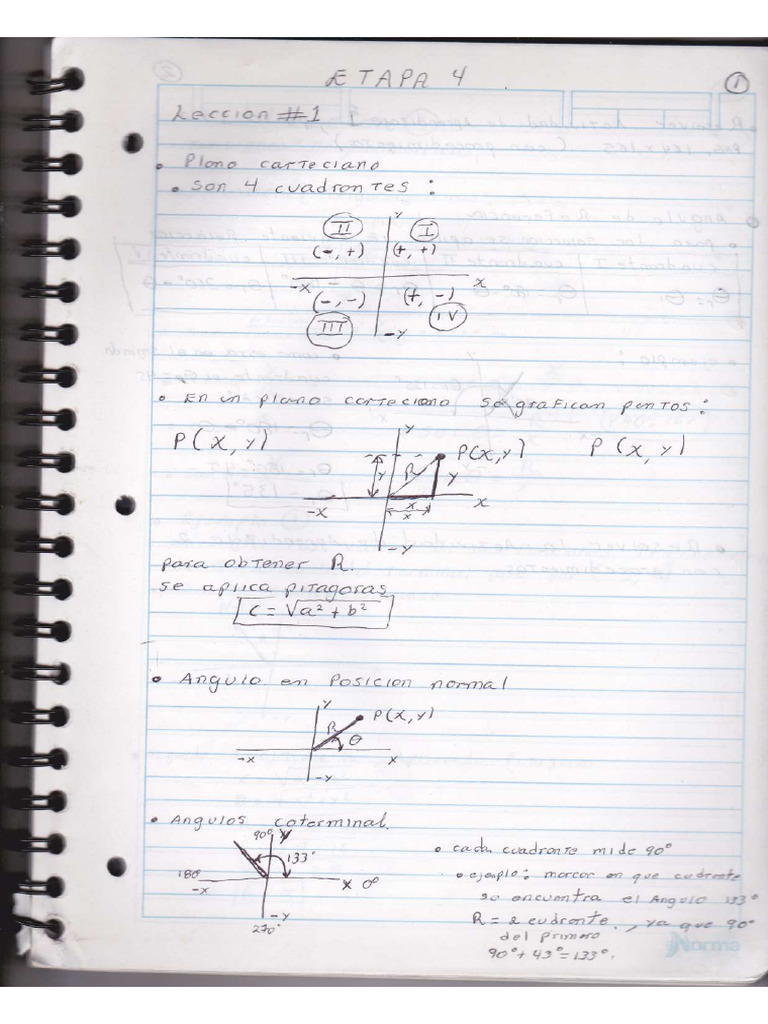 ETAPA 4
1
Leccion #1
• Plano carteciano
• Son 4 cuadrantes :
II
Y
I
(-, +)
(+, +)
-X
X
(-, -)
(+, -)
III
IV
-Y
• En un plano carteciano se grafican puntos :
P(X, Y)
Y
P(X,Y)
P(X, Y)
Y
R
Y
-X
X
X
-Y
para obtener R.
se aplica pitagoras
C = √a² + b²
• Angulo en Posicion normal
Y
P(X, Y)
R
θ
-X
X
-Y
• Angulos coterminal.
90° Y
133°
180°
-X
X 0°
-Y
270°
• cada cuadrante mide 90°
• ejemplo : marcar en que cudrante
se encuentra el Angulo 133°
R = 2 cudrante., ya que 90°
del primero
90° + 43° = 133°.
Norma